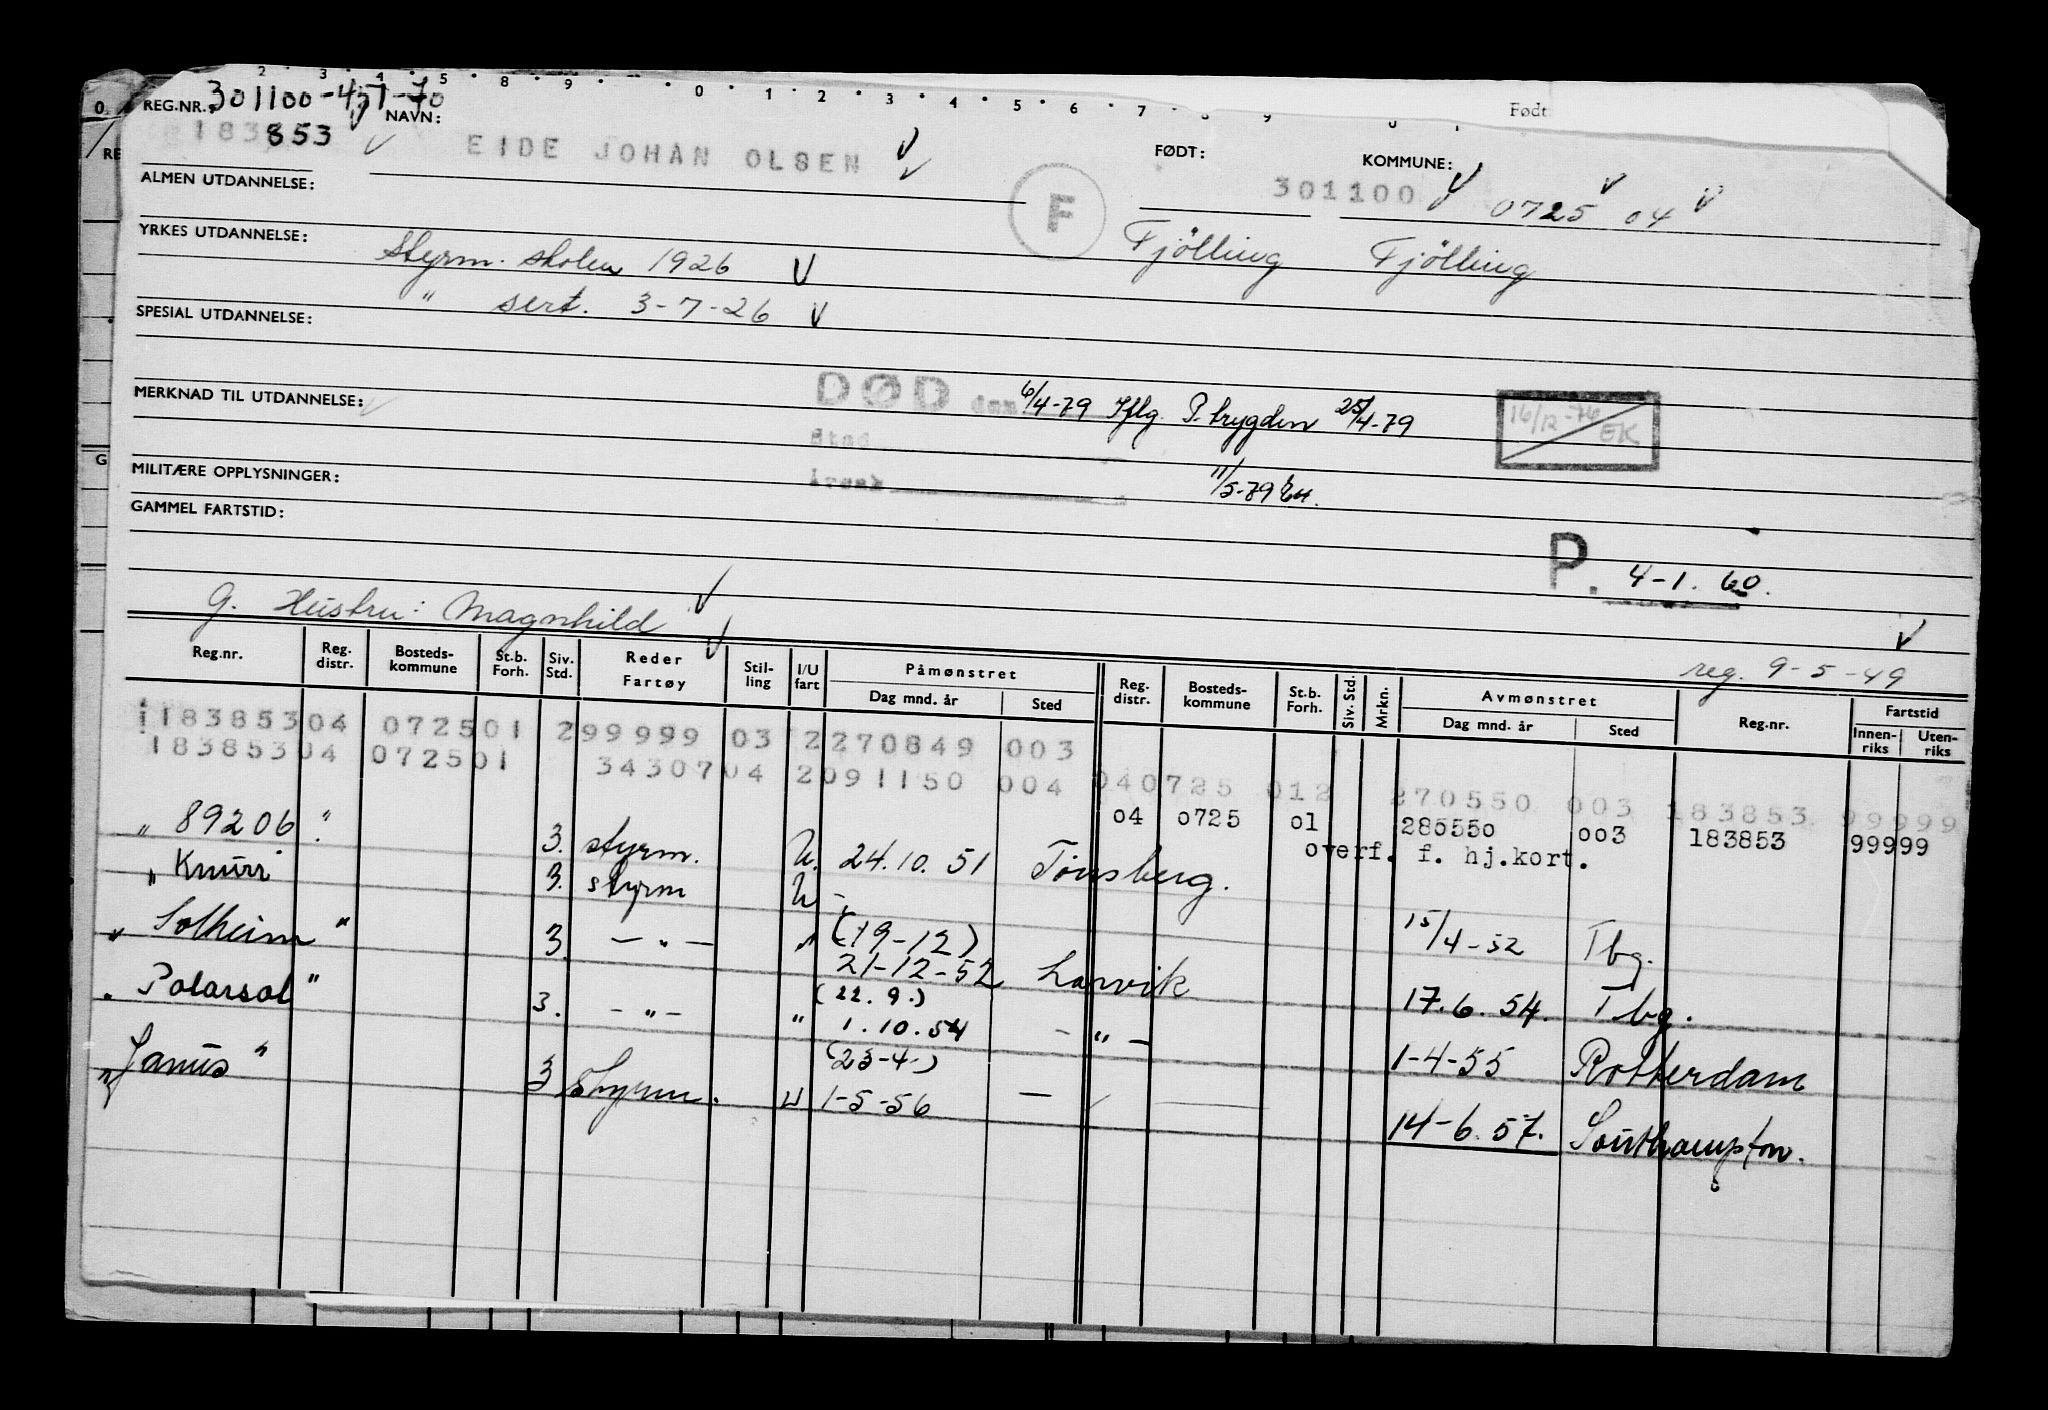 2 · 3 · 4 · 5 · 8 · 9 · · 0 · 1 · 2 · 3 · 4 · 5 · 6 · 7 · 9
Født
0
REG.NR. 301100-451-70 NAVN:
183 853 EIDE JOHAN OLSEN FØDT: KOMMUNE:
RE
301100 0725 04
ALMEN UTDANNELSE: F
Fjölling Fjölling
YRKES UTDANNELSE: Styrm. skolen 1926
" sert. 3-7-26
SPESIAL UTDANNELSE:
DØD den 6/4-79 Iflg. P. trygden 25/4-79
16/12-76 EK
MERKNAD TIL UTDANNELSE:
Sted
G
MILITÆRE OPPLYSNINGER: Årsak 11/5-79
GAMMEL FARTSTID:
P. 4-1.60.
G. Hustru: Magnhild
reg. 9-5-49
Reg.nr. Reg. distr. Bosteds-kommune St.b. Forh. Siv. Std. Reder Fartøy Stil-ling I/U fart Påmønstret Dag mnd. år Sted Reg. distr. Bosteds-kommune St.b. Forh. Siv. Std. Mrkn. Avmønstret Dag mnd. år Sted Reg.nr. Fartstid Innen-riks Uten-riks
18385304 072501 299999 03 2270849 003 040725 012 270550 003 183853 99999
18385304 072501 3430704 2091150 004 04 0725 01 280550 003 183853 99999
overf. f. hj.kort.
" 89206 " 3. styrm. U. 24.10.51 Tönsberg.
" Knurr 3. styrm U - 15/4-52 Tbg.
" Solheim " 3. - " - " (19-12) 21-12-52 Larvik 17.6.54. Tbg.
" Polarsol " 3. - " - " (22.9.) 1.10.54 - " - 1-4-55 Rotterdam
" Janus " 3 Styrm. U (23-4-) 1-5-56 — 14-6.57. Southampton.